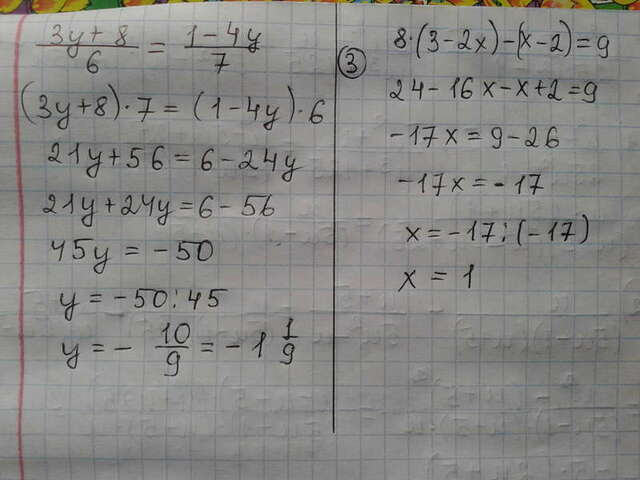 3y + 8 / 6 = 1 - 4y / 7
(3y+8)·7 = (1-4y)·6
21y + 56 = 6 - 24y
21y + 24y = 6 - 56
45y = -50
y = -50:45
y = - 10/9 = -1 1/9
③
8·(3-2x)-(x-2)=9
24-16x-x+2=9
-17x=9-26
-17x=-17
x=-17:(-17)
x = 1